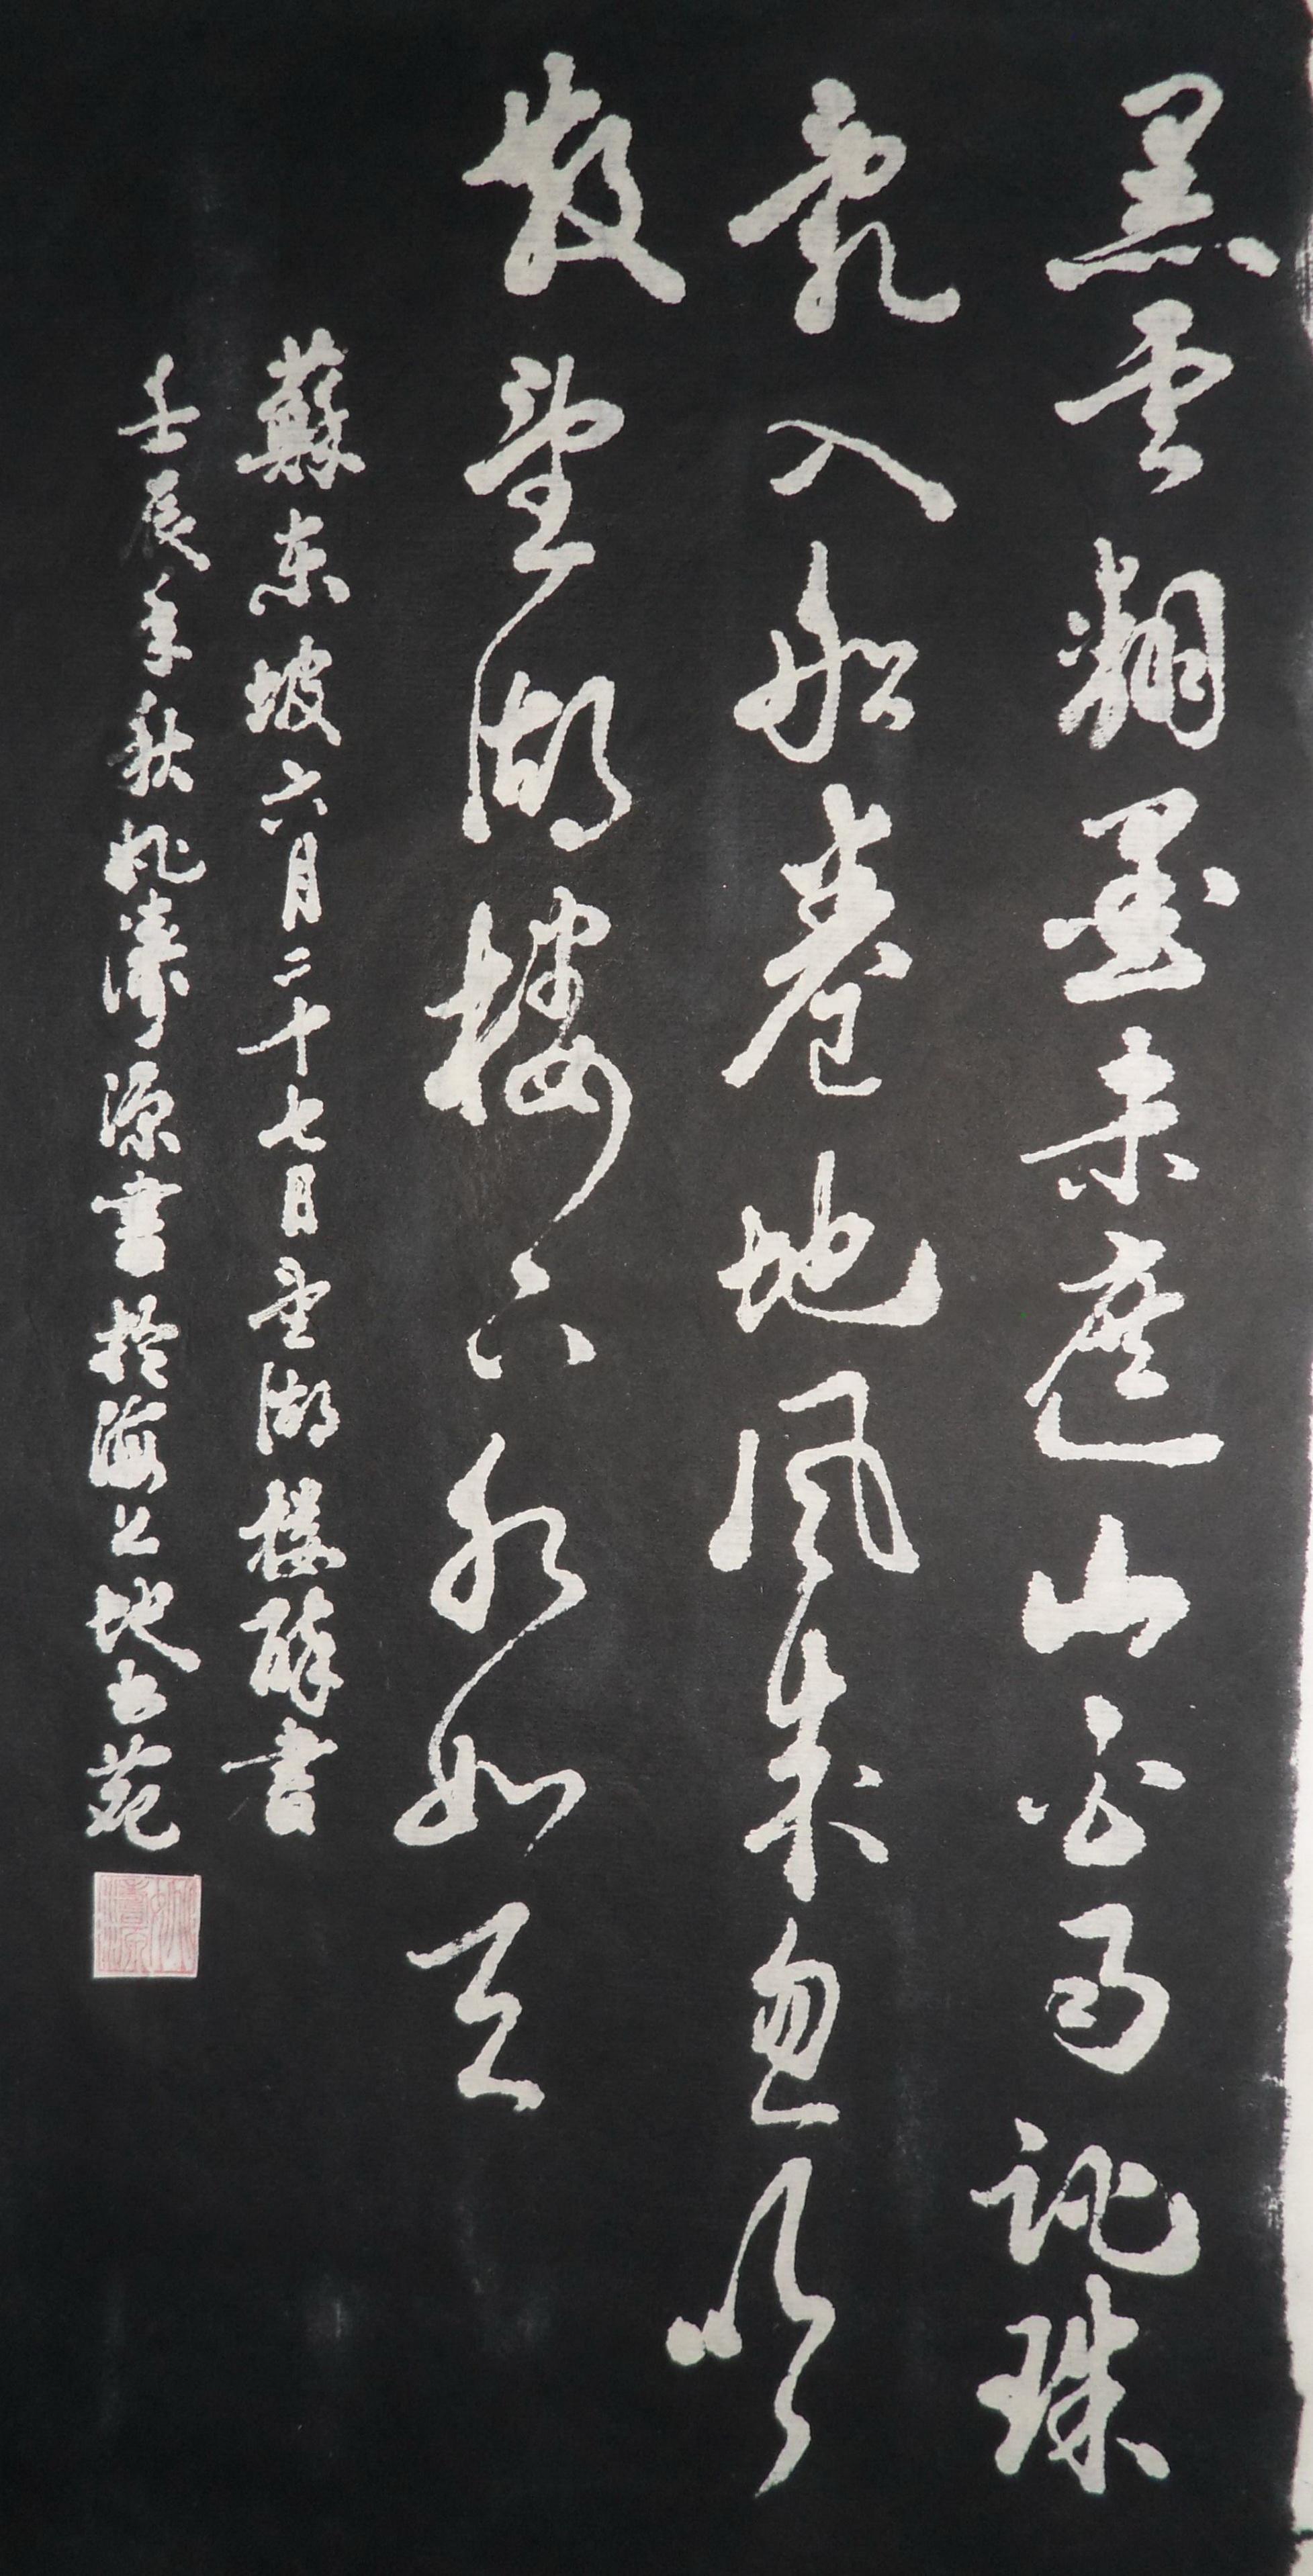 黑雲翻墨未遮山白雨跳珠
亂入船卷地風來忽吹
散望湖樓下水如天
蘇東坡六月二十七日望湖樓醉書
壬辰年秋姚濤源書於海上地苑